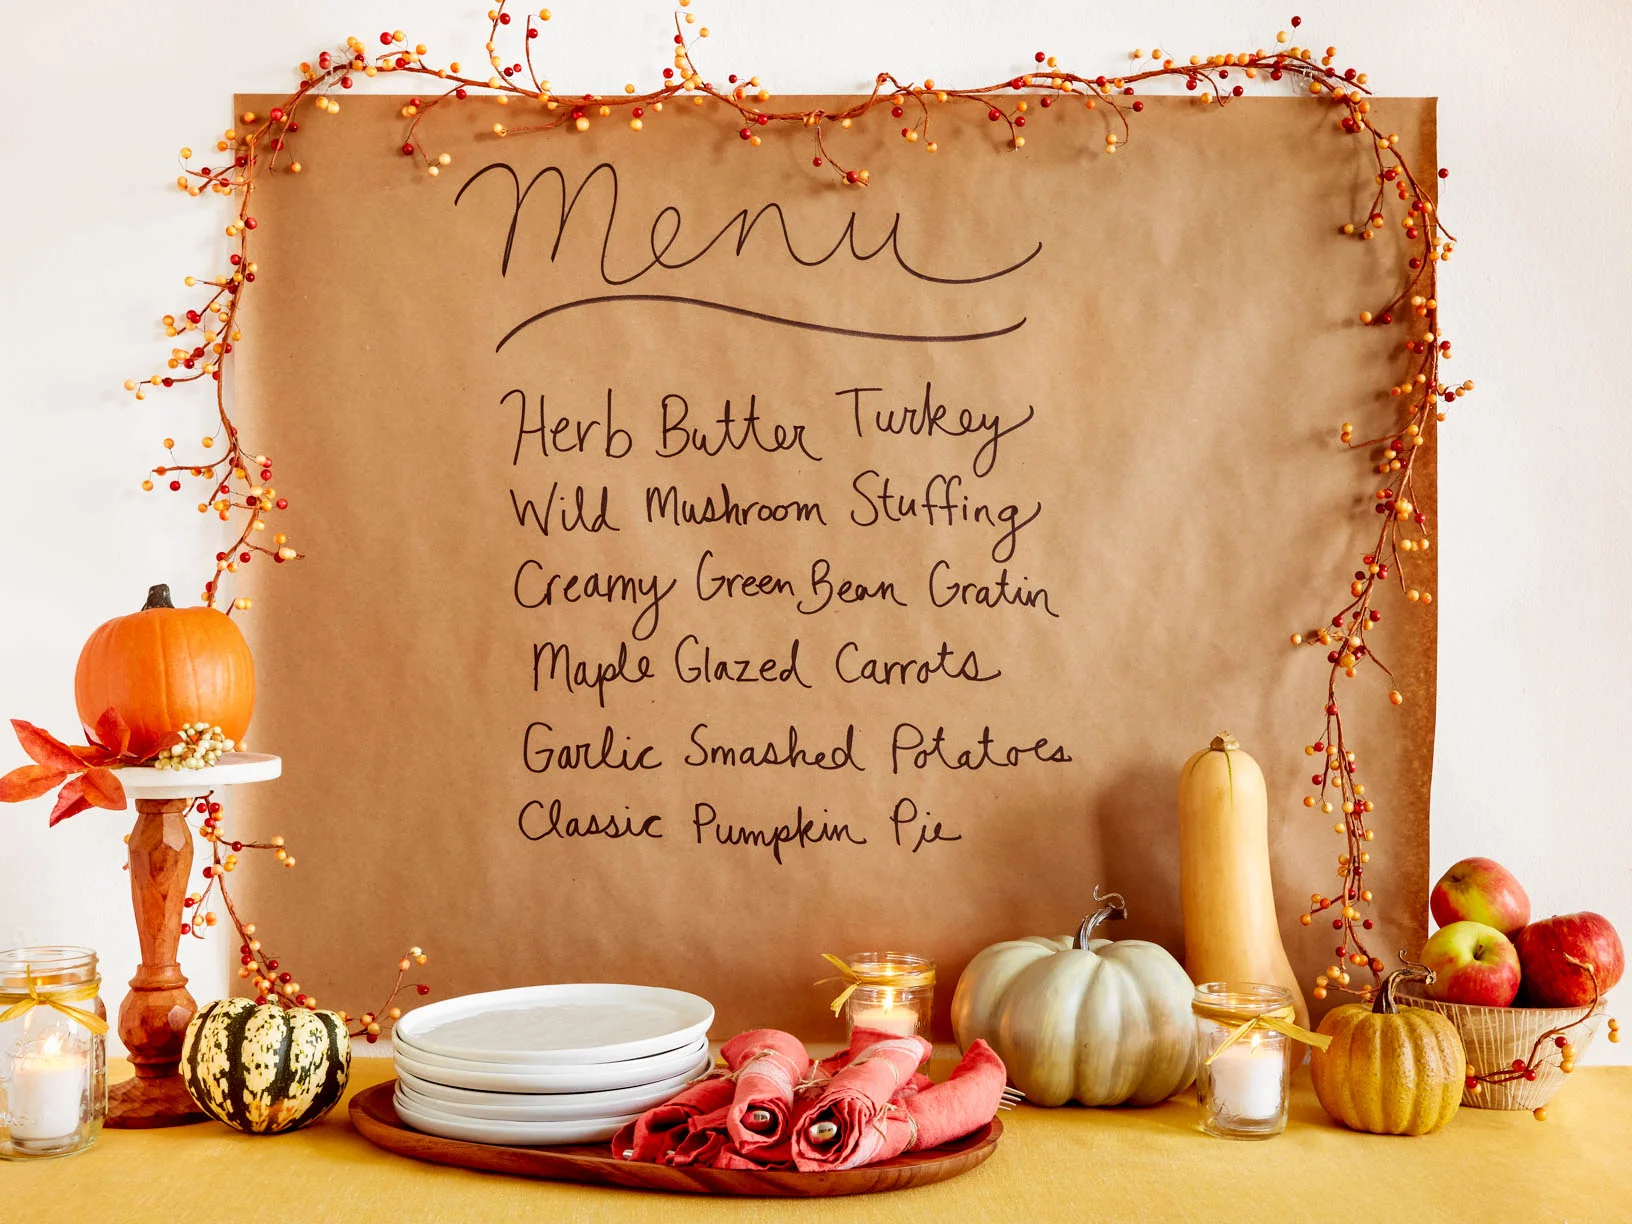 Menu
Herb Butter Turkey
Wild Mushroom Stuffing
Creamy Green Bean Gratin
Maple Glazed Carrots
Garlic Smashed Potatoes
Classic Pumpkin Pie